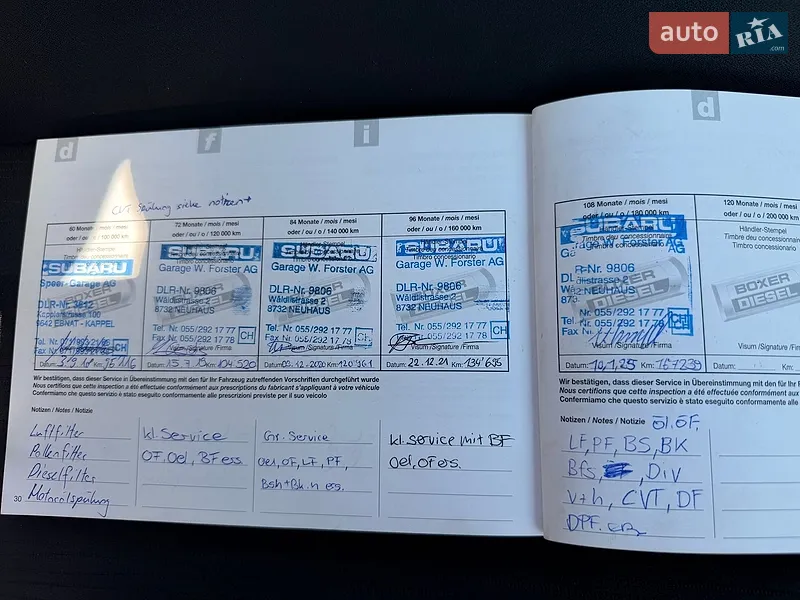 auto RIA .com
d f i
d
CVT Spülung siehe notizen
60 Monate / mois / mesi
oder / ou / o / 100 000 km
Händler-Stempel
SUBARU
Speer-Garage AG
DLR-Nr. 3612
Kapplerstrasse 100
9642 EBNAT - KAPPEL
Tel.
Fax
CH
Datum: Km:
72 Monate / mois / mesi
oder / ou / o / 120 000 km
SUBARU
Garage W. Forster AG
DLR-Nr. 9806
Wäldlistrasse 2
8732 NEUHAUS
Tel. Nr. 055/292 17 77
Fax Nr. 055/292 17 78
CH
Datum: Km: 104'520
84 Monate / mois / mesi
oder / ou / o / 140 000 km
SUBARU
Garage W. Forster AG
DLR-Nr. 9806
Wäldlistrasse 2
8732 NEUHAUS
Tel. Nr. 055/292 17 77
Fax Nr. 055/292 17 78
Visum /Signature /Firma
Datum: .12.2020 Km:
96 Monate / mois / mesi
oder / ou / o / 160 000 km
SUBARU
Timbre concessionnaire
Garage W. Forster AG
DLR-Nr. 9806
Wäldlistrasse 2
8732 NEUHAUS
Tel. Nr. 055/292 17 77
Fax Nr. 055/292 17 78
CH
Visum /Signature /Firma
Datum: 22.12.21 Km: 134'695
Wir bestätigen, dass dieser Service in Übereinstimmung mit den für Ihr Fahrzeug zutreffenden Vorschriften durchgeführt wurde
Nous certifions que cette inspection a été effectuée conformément aux prescriptions du fabricant s'appliquant à votre véhicule
Confermiamo che questo servizio è stato eseguito conformamente alle prescrizioni previste per il suo veicolo
Notizen / Notes / Notizie
Luftfilter
Pollenfilter
Dieselfilter
Motorölspülung
kl. Service
OF. Oel, BF ers
Gr. Service
Oel, OF, LF, PF,
kl. Service mit BF
Oel, OF ers.
30
108 Monate / mois / mesi
oder / ou / o / 180 000 km
Timbre du concessionnaire
SUBARU
Forster AG
Nr. 9806
NEUHAUS
Tel. Nr. 055/292 17 77
Fax Nr. 055/292 17 78
Visum /Signature /Firma
Datum: 10,1,25 Km: 167239
120 Monate / mois
oder / ou / o / 200 000
Händler-Stempel
Timbre du concessionnaire
Timbro concessionario
BOXER
DIESEL
Visum /Signature /Firma
Datum: Km:
Wir bestätigen, dass dieser Service in Übereinstimmung mit den für Ihr
Nous certifions que cette inspection a été effectuée conformément aux
Confermiamo che questo servizio è stato eseguito conformamente alle
Notizen / Notes / Notizie Öl. ÖF.
LF, PF, BS, BK
Bfs, Div
V+h, CVT, DF
DPF.